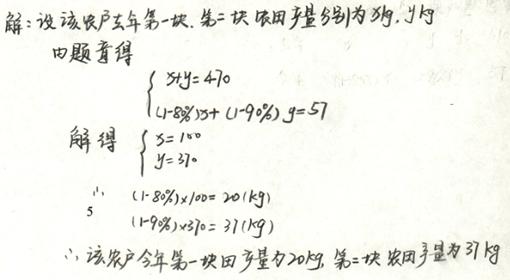 解:设该农户去年第一块、第二块农田产量分别为xkg,ykg
由题意得
{ x+y=470
(1-80%)x+(1-90%)y=57
解得 { x=100
y=370
∴ (1-80%)×100=20(kg)
5
(1-90%)×370=37(kg)
∴该农户今年第一块田产量为20kg,第二块农田产量为37kg